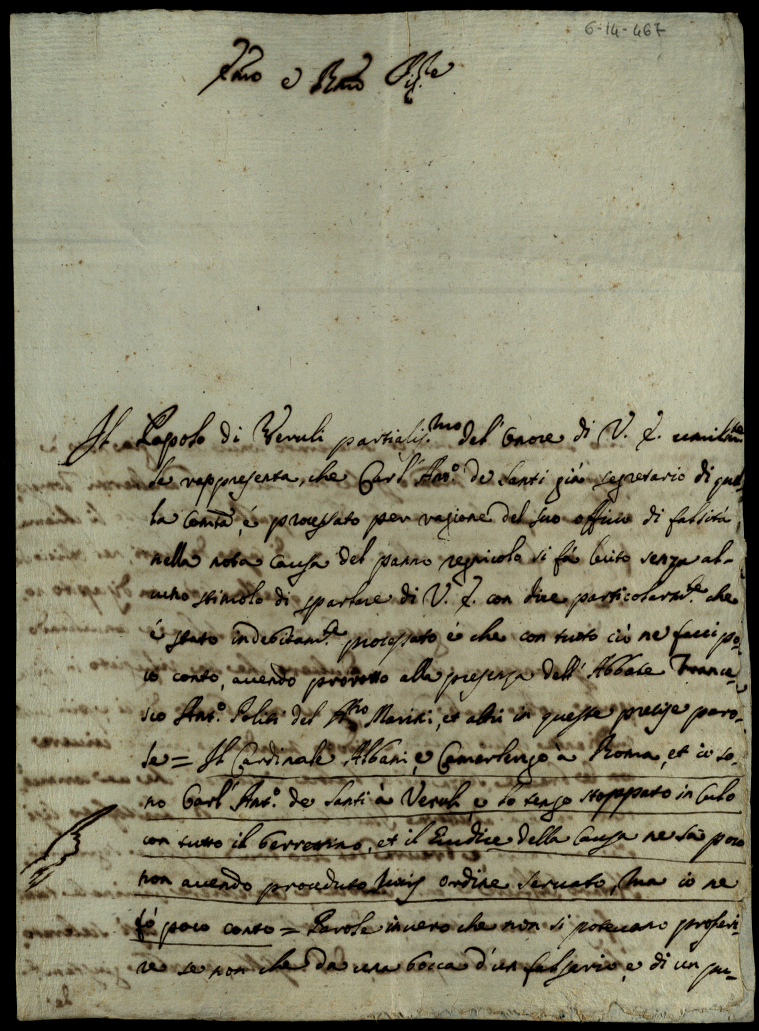 6-14-467
Emo e Rmo Sig.re
Il Popolo di Veruli partialis.mo del'onore di V. E. umilm.te
le rappresenta, che Carl'Ant.o de Santi già segretario di quel
la Comtà, é processato per ragione del suo officio di falsità
nella nota Causa del panno regnicolo si fà lecito senza al-
cuno stimolo di sparlare di V. E. con dire particolarm.te che
é stato indebitam.te processato é che con tutto ciò ne facci po-
co conto, avendo all presenza dell'Abbate France-
sco Ant.o Politi del Marini, et altri in queste precise paro-
le = Il Cardinale Albani, e Camerlengo à Roma, et io so-
no Carl'Ant.o de Santi à Veruli, e lo tengo stoppato in Culo
con tutto il berrettino, et il Giudice della Causa ne sà poco
non avendo proceduto Juris ordine servato, ma io ne
fò poco conto = Parole invero che non si potevano proferi-
re se non che da una bocca d'un falsario, e di un pu-